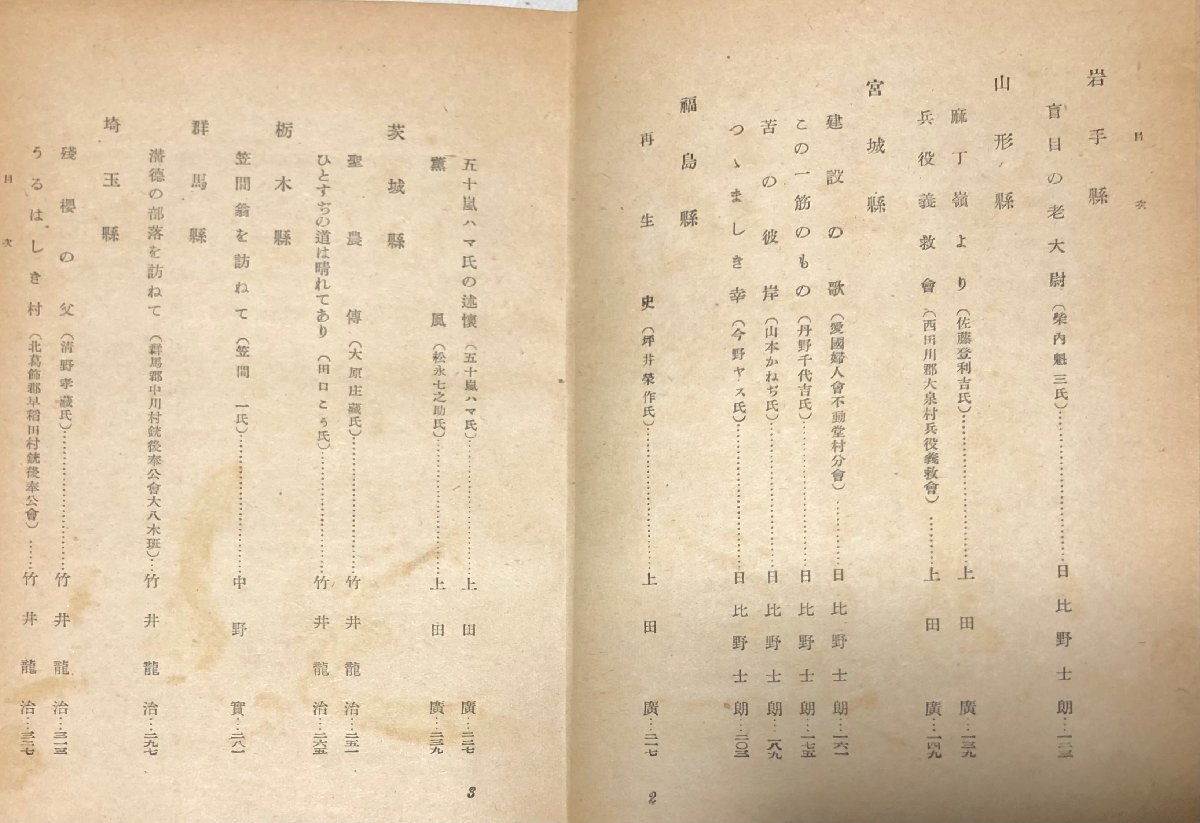 目次
岩手縣
盲目の老大尉(柴內魁三氏)……日比野士朗…一二三
山形縣
麻丁嶺より(佐藤登利吉氏)……上田廣…一三九
兵役義救會(西田川郡大泉村兵役義救會)……上田廣…一四九
宮城縣
建設の歌(愛國婦人會不動堂村分會)……日比野士朗…一六一
この一筋のもの(丹野千代吉氏)……日比野士朗…一七五
苦の彼岸(山本かねぢ氏)……日比野士朗…一八九
つゝましき幸(今野ヤス氏)……日比野士朗…二〇三
福島縣
再生史(坪井榮作氏)……上田廣…二一七
2
五十嵐ハマ氏の述懷(五十嵐ハマ氏)……上田廣…二二七
薰風(松永七之助氏)……上田廣…二三九
茨城縣
聖農傳(大原庄藏氏)……竹井龍治…二五一
ひとすぢの道は晴れてあり(田口こう氏)……竹井龍治…二六五
栃木縣
笠間翁を訪ねて(笠間一氏)……中野實…二八一
群馬縣
潜德の部落を訪ねて(群馬郡中川村銃後奉公會大八木班)…竹井龍治…二九七
埼玉縣
殘櫻の父(淸野孝藏氏)……竹井龍治…三一三
うるはしき村(北葛飾郡早稻田村銃後奉公會)……竹井龍治…三二七
目次
3